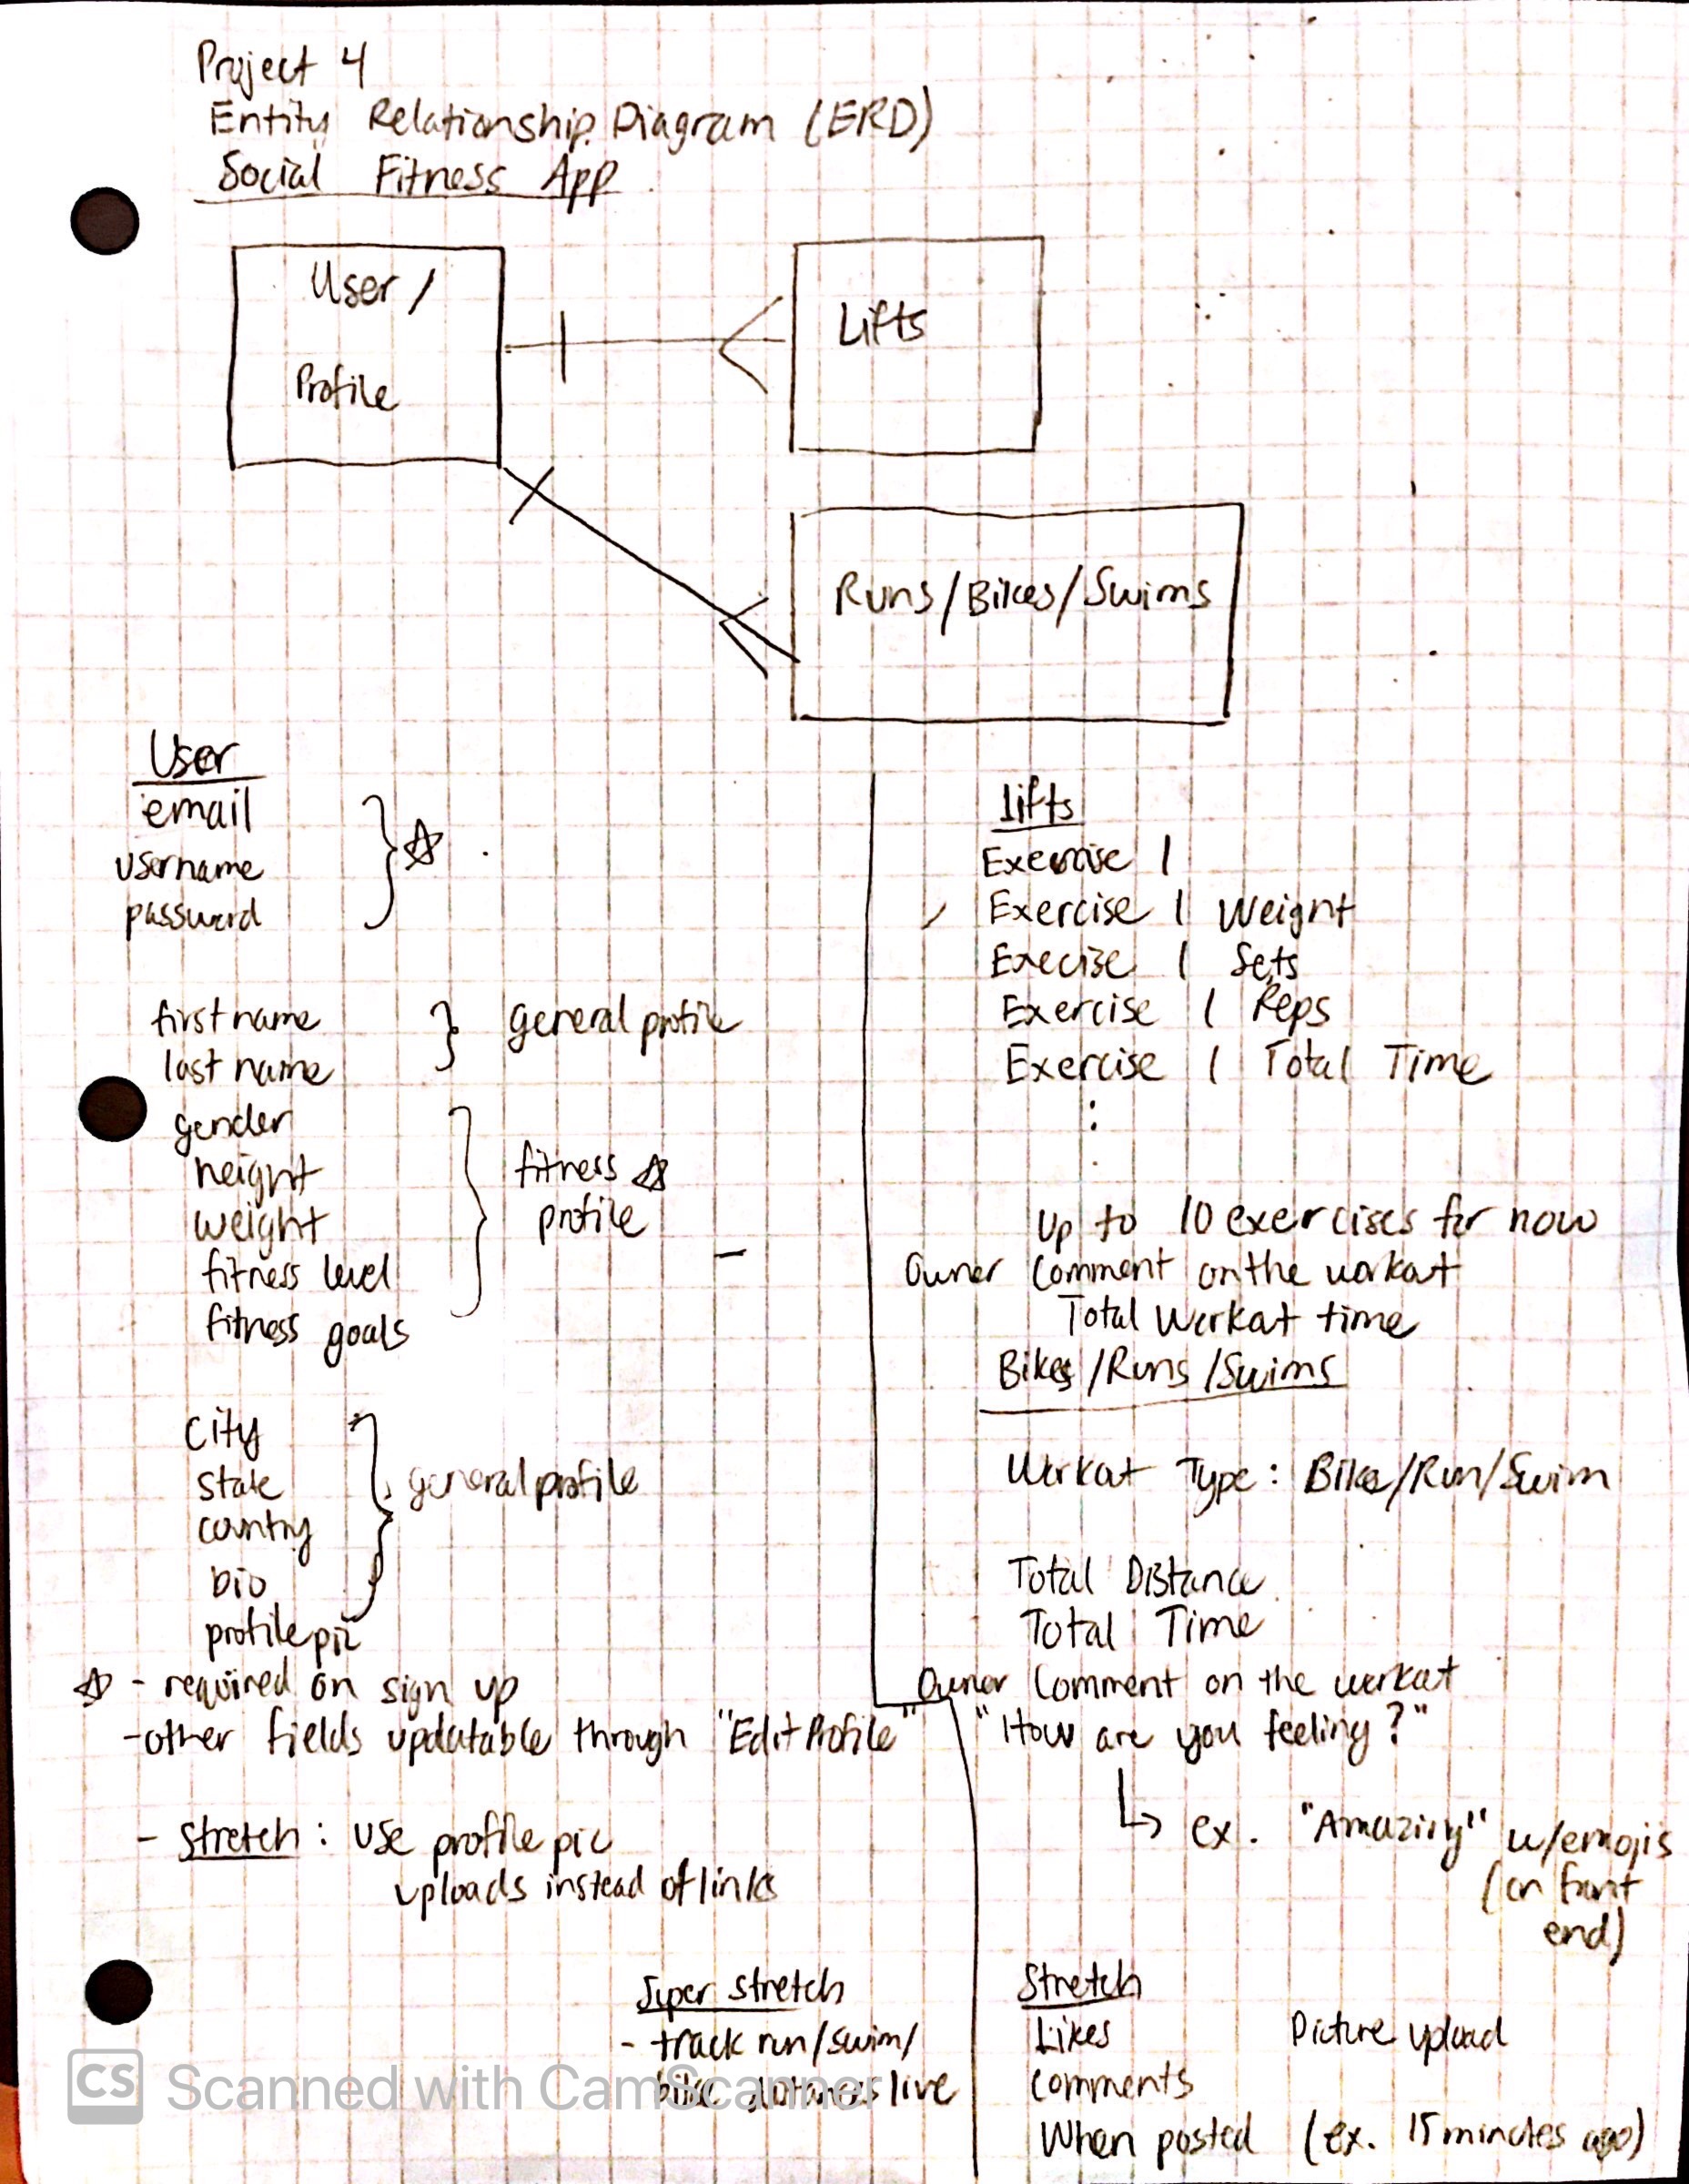 Project 4
Entity Relationship Diagram (ERD)
Social Fitness App
User /
Profile
Lifts
Runs/Bikes/Swims
User
email
username
password
☆
firstname
last name
general profile
gender
height
weight
fitness level
fitness goals
fitness ☆
profile
city
state
country
bio
profile pic
general profile
☆ - required on sign up
- other fields updatable through "Edit Profile"
- Stretch: use profile pic
uploads instead of links
Super stretch
- track run/swim/
bike distances live
Lifts
Exercise 1
Exercise 1 Weight
Execise 1 Sets
Exercise 1 Reps
Exercise 1 Total Time
Up to 10 exercises for now
Owner Comment on the workout
Total Workout time
Bikes/Runs/Swims
Workout Type: Bike/Run/Swim
Total Distance
Total Time
Owner Comment on the workout
"How are you feeling?"
↳ ex. "Amazing" w/emojis
(on front
end)
Stretch
Likes
Picture upload
Comments
When posted (ex. 15 minutes ago)
CS Scanned with CamScanner